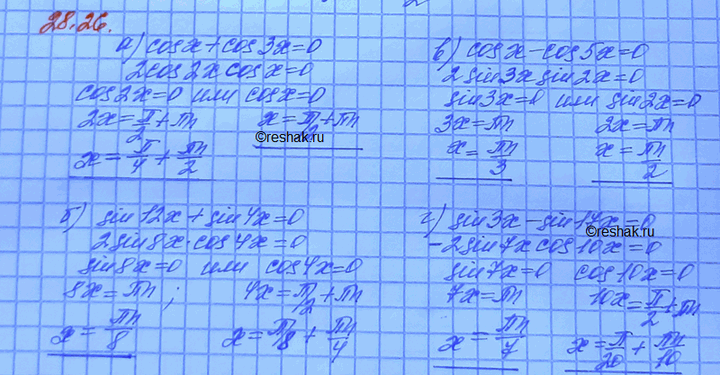 28.26.
а) cosx+cos3x=0
2cos2x cosx=0
cos2x=0 или cosx=0
2x=π/2+πn x=π/2+πn
©reshak.ru
x=π/4+πn/2
в) cosx-cos5x=0
2sin3x sin2x=0
sin3x=0 или sin2x=0
3x=πn 2x=πn
x=πn/3 x=πn/2
б) sin12x+sin4x=0
2sin8x·cos4x=0
sin8x=0 или cos4x=0
8x=πn; 4x=π/2+πn
x=πn/8 x=π/8+πn/4
г) sin3x-sin17x=0
©reshak.ru
-2sin7x cos10x=0
sin7x=0 cos10x=0
7x=πn 10x=π/2+πn
x=πn/7 x=π/20+πn/10